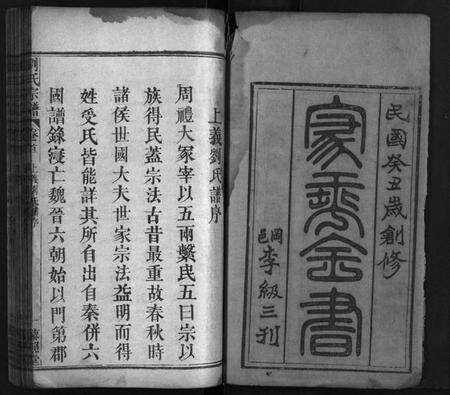 民國癸丑歲創修
家乘全書
岡邑
李級三刊
上義劉氏譜序
周禮大冢宰以五兩繫民五曰宗以
族得民蓋宗法古昔最重故春秋時
諸侯世國大夫世家宗法益明而得
姓受氏皆能詳其所自出自秦併六
國譜錄寖亡魏晉六朝始以門第郡
劉氏宗譜 卷首